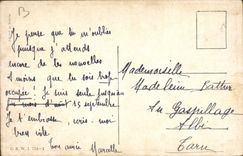 B
Je pense que tu m'oublies
puisque j'attends
encore de tes nouvelles
A moins que tu sois trop
occupée! Je suis seule jusqu'au
15 septembre.
Je t'embrasse, écris-moi
très vite.
ton amie Marcelle
Mademoiselle
Madeleine
Au Gaspillage
Albi
Tarn